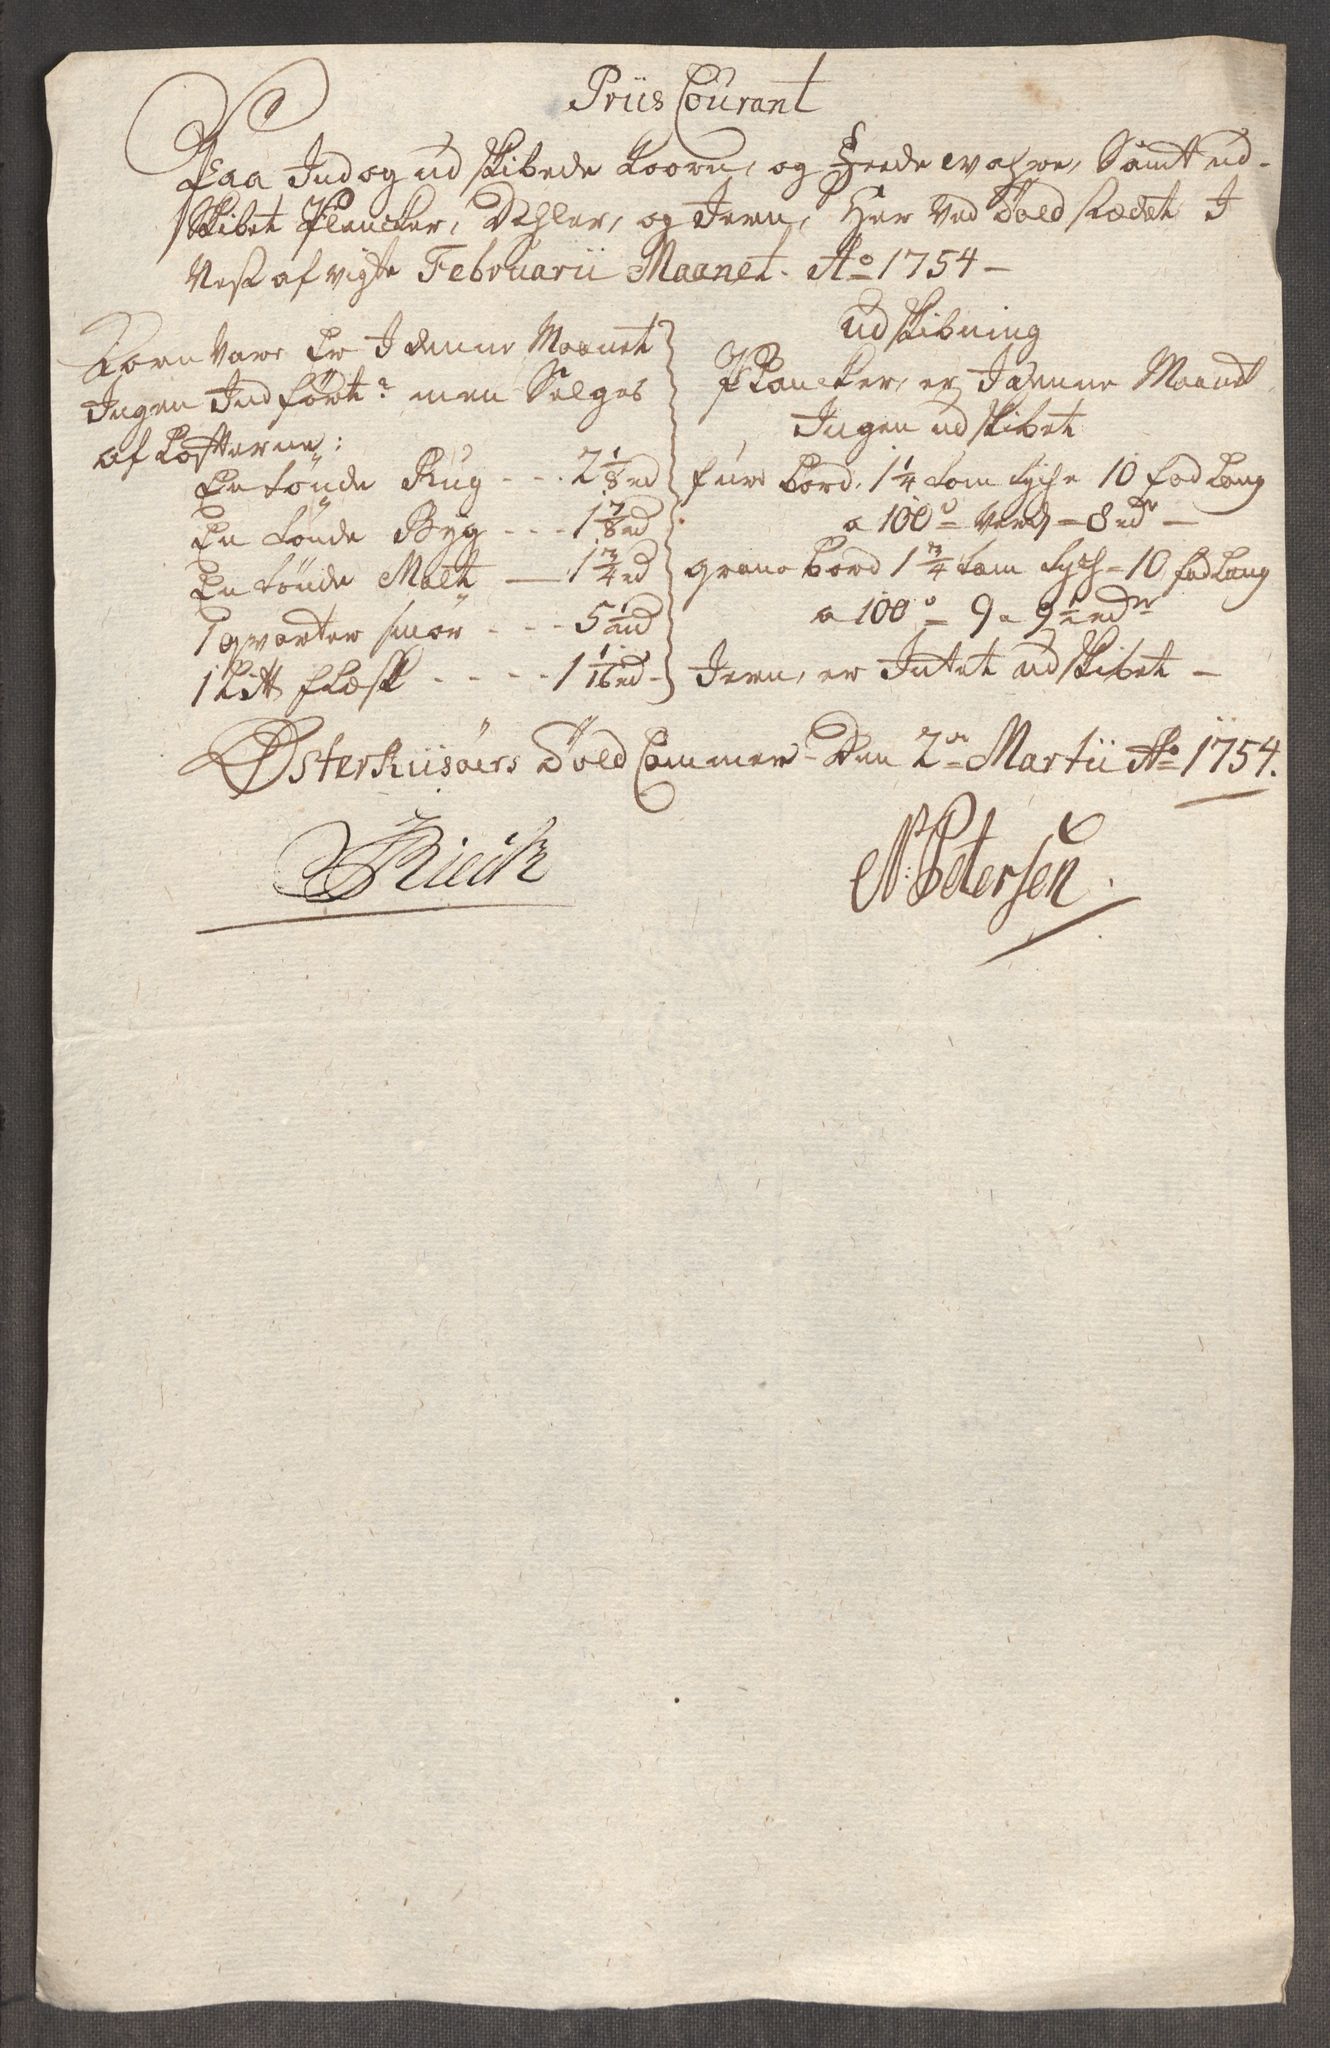 Priis Courant
Paa Ind og ud skibede Koorn, og Feede wahre, Samt ud-
skibet Plancker, Dehler, og Jern, Her Ved Told stædet J
Nest afvigte Februarii Maanet. Ao 1754 -
Korn Vare Er J denne Maanet
Jngen Jndført: men Selges
af Lofterne:
En tönde Rug - - - 2 1/8 rd
En tönde Byg - - - 1 7/8 rd
En tönde Malt - 1 3/4 rd
1 qvarter smör - - - 5 1/2 rd
1 Lit flæsk - - - - 1 1/16 rd -
Udskibning
Plancker, er J denne Maanet
Jngen udskibet
furu bord, 1 1/4 tom tych 10 fod lang
a 100 - Verd - 8 rdr -
grane bord 1 3/4 tom tych - 10 fod lang
a 100 - 9 a 9 1/2 rdr
Jern, er Jntet udskibet -
Østerriisöers Told Cammer - Den 2en Martii Ao 1754.
Rieck
N: Petersen